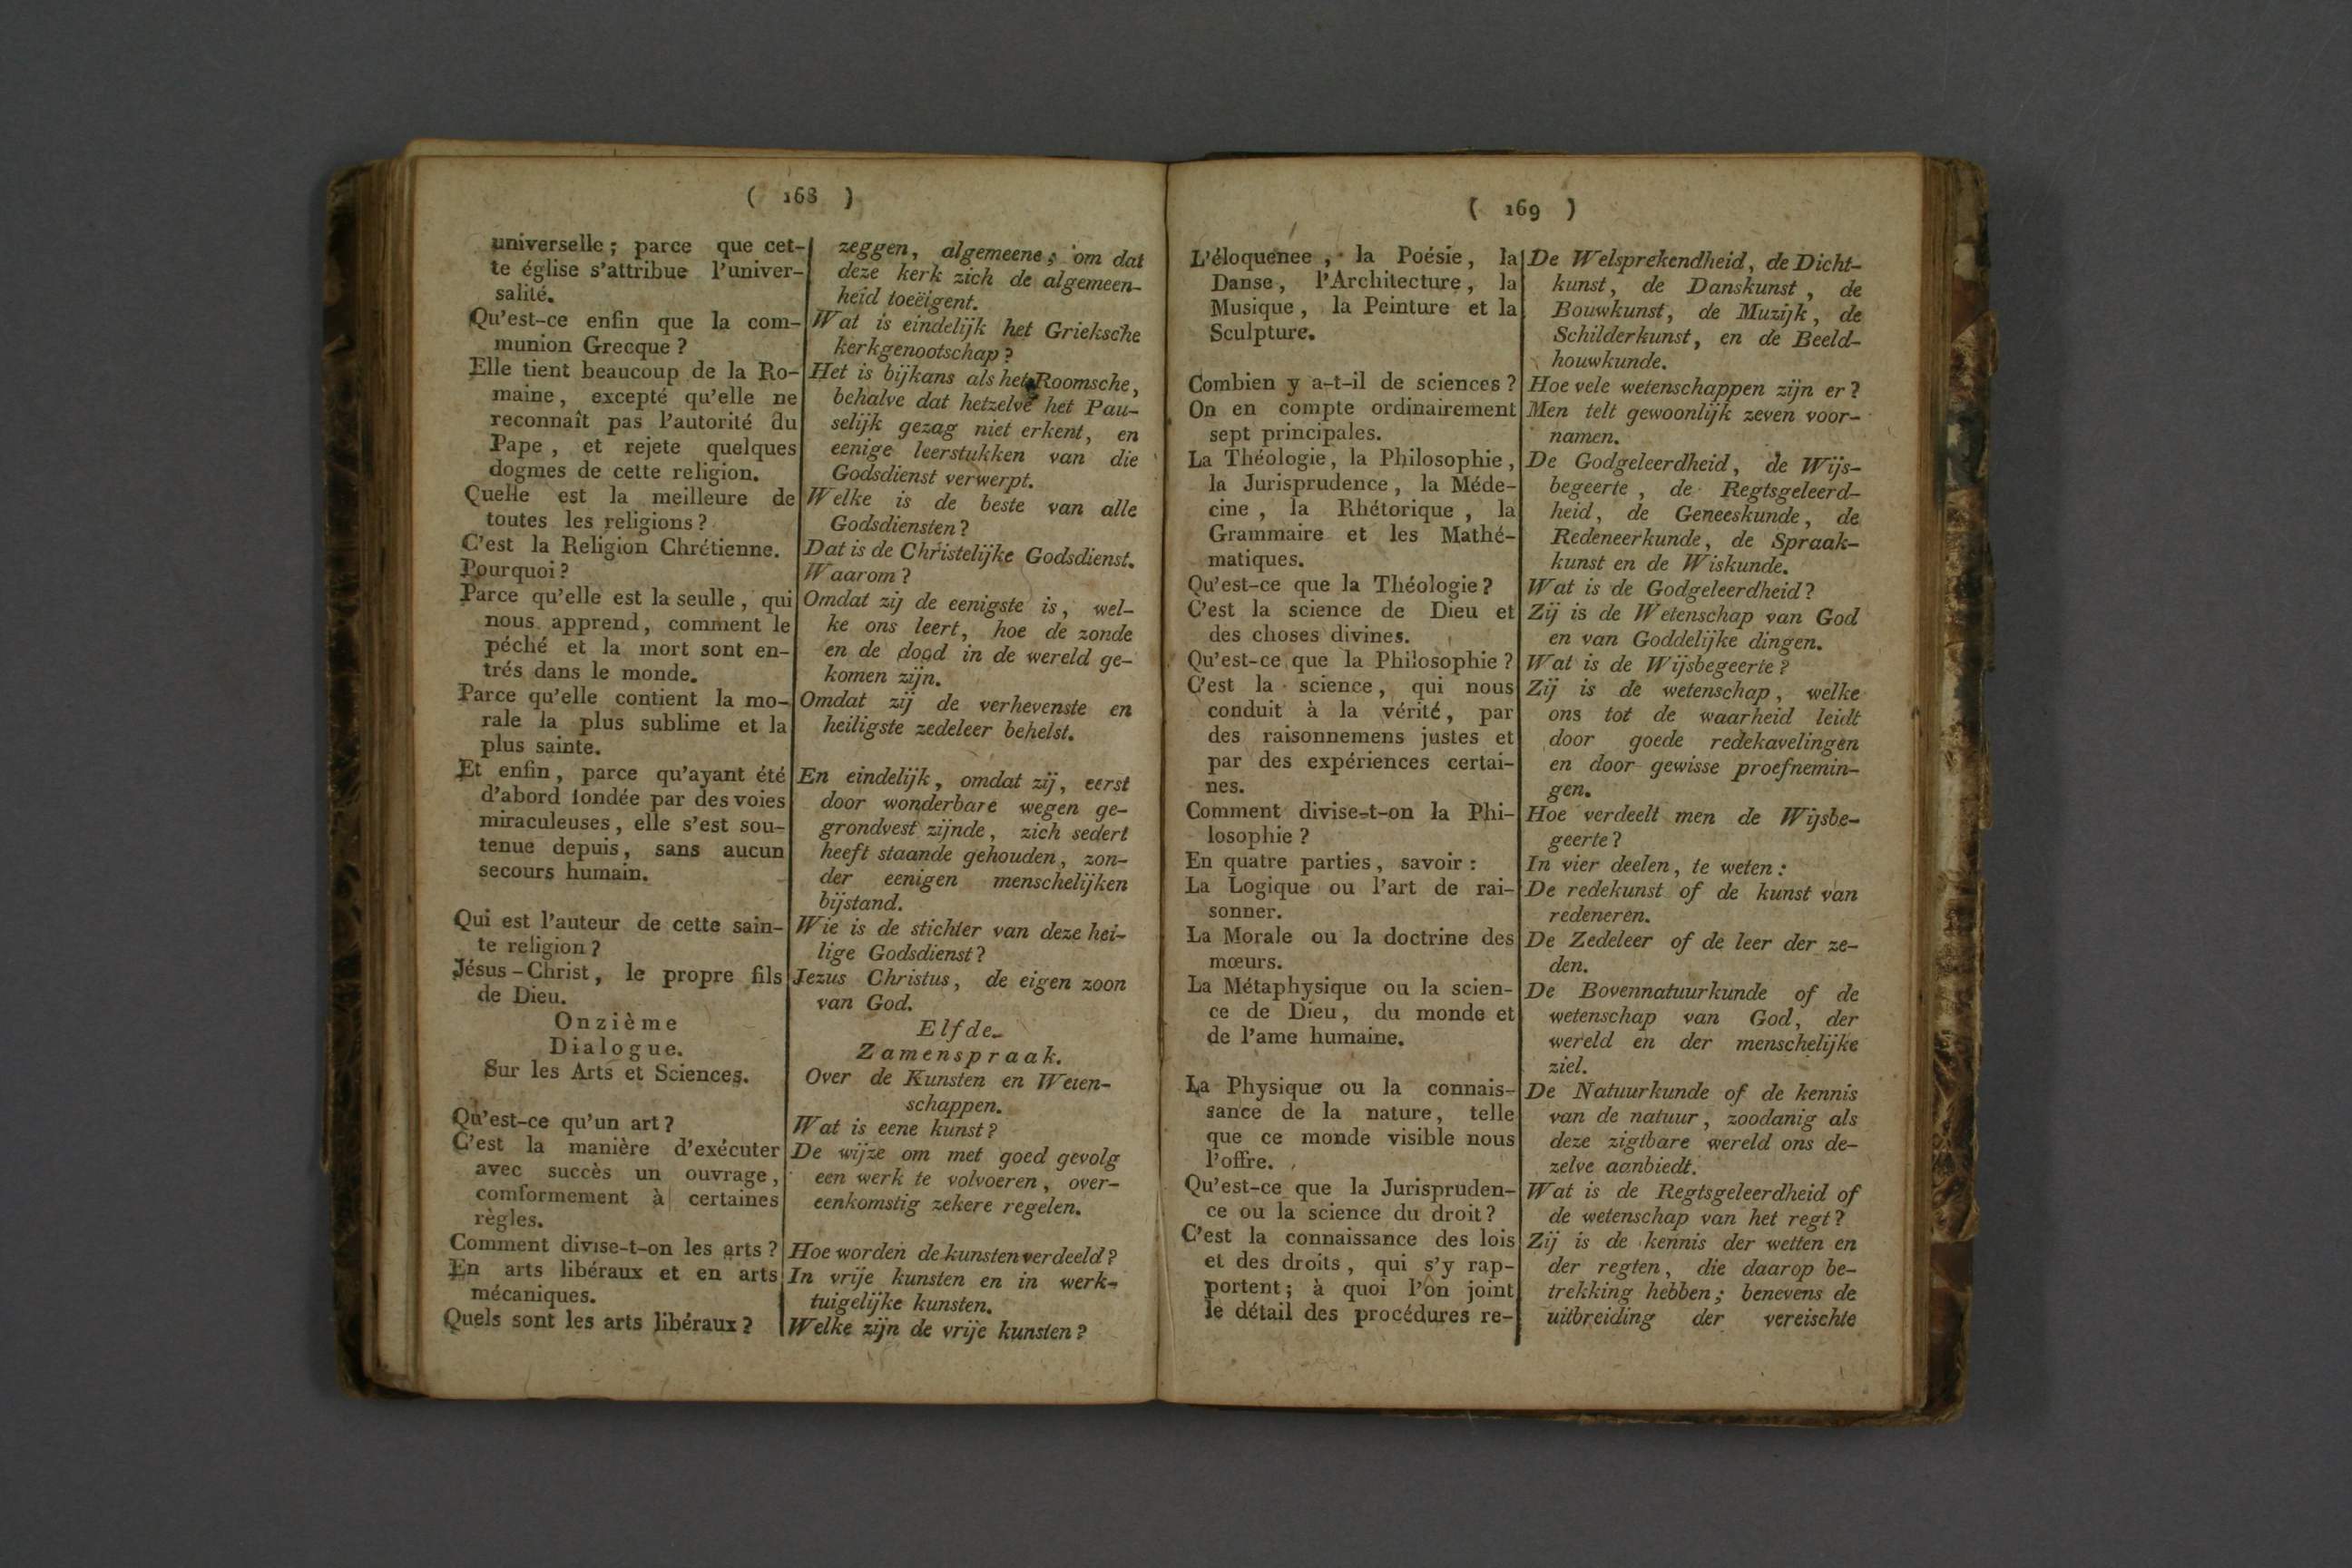 ( 168 )
universelle ; parce que cet-
te église s'attribue l'univer-
salité.
Qu'est-ce enfin que la com-
munion Grecque ?
Elle tient beaucoup de la Ro-
maine, excepté qu'elle ne
reconnaît pas l'autorité du
Pape, et rejete quelques
dogmes de cette religion.
Quelle est la meilleure de
toutes les religions ?
C'est la Religion Chrétienne.
Pourquoi ?
Parce qu'elle est la seulle, qui
nous apprend, comment le
péché et la mort sont en-
trés dans le monde.
Parce qu'elle contient la mo-
rale la plus sublime et la
plus sainte.
Et enfin, parce qu'ayant été
d'abord fondée par des voies
miraculeuses, elle s'est sou-
tenue depuis, sans aucun
secours humain.
Qui est l'auteur de cette sain-
te religion ?
Jésus-Christ, le propre fils
de Dieu.
Onzième
Dialogue.
Sur les Arts et Sciences.
Qu'est-ce qu'un art ?
C'est la manière d'exécuter
avec succès un ouvrage,
comformement à certaines
règles.
Comment divise-t-on les arts ?
En arts libéraux et en arts
mécaniques.
Quels sont les arts libéraux ?
zeggen, algemeene ; om dat
deze kerk zich de algemeen-
heid toeëigent.
Wat is eindelijk het Grieksche
kerkgenootschap ?
Het is bijkans als het Roomsche,
behalve dat hetzelve het Pau-
selijk gezag niet erkent, en
eenige leerstukken van die
Godsdienst verwerpt.
Welke is de beste van alle
Godsdiensten ?
Dat is de Christelijke Godsdienst.
Waarom ?
Omdat zij de eenigste is, wel-
ke ons leert, hoe de zonde
en de dood in de wereld ge-
komen zijn.
Omdat zij de verhevenste en
heiligste zedeleer behelst.
En eindelijk, omdat zij, eerst
door wonderbare wegen ge-
grondvest zijnde, zich sedert
heeft staande gehouden, zon-
der eenigen menschelijken
bijstand.
Wie is de stichter van deze hei-
lige Godsdienst ?
Jezus Christus, de eigen zoon
van God.
Elfde
Zamenspraak.
Over de Kunsten en Weten-
schappen.
Wat is eene kunst ?
De wijze om met goed gevolg
een werk te volvoeren, over-
eenkomstig zekere regelen.
Hoe worden de kunsten verdeeld ?
In vrije kunsten en in werk-
tuigelijke kunsten.
Welke zijn de vrije kunsten ?
( 169 )
L'éloquenee, la Poésie, la
Danse, l'Architecture, la
Musique, la Peinture et la
Sculpture.
Combien y a-t-il de sciences ?
On en compte ordinairement
sept principales.
La Théologie, la Philosophie,
la Jurisprudence, la Méde-
cine, la Rhétorique, la
Grammaire et les Mathé-
matiques.
Qu'est-ce que la Théologie ?
C'est la science de Dieu et
des choses divines.
Qu'est-ce que la Philosophie ?
C'est la science, qui nous
conduit à la vérité, par
des raisonnemens justes et
par des expériences certai-
nes.
Comment divise-t-on la Phi-
losophie ?
En quatre parties, savoir :
La Logique ou l'art de rai-
sonner.
La Morale ou la doctrine des
mœurs.
La Métaphysique ou la scien-
ce de Dieu, du monde et
de l'ame humaine.
La Physique ou la connais-
sance de la nature, telle
que ce monde visible nous
l'offre.
Qu'est-ce que la Jurispruden-
ce ou la science du droit ?
C'est la connaissance des lois
et des droits, qui s'y rap-
portent ; à quoi l'on joint
le détail des procédures re-
De Welsprekendheid, de Dicht-
kunst, de Danskunst, de
Bouwkunst, de Muzijk, de
Schilderkunst, en de Beeld-
houwkunde.
Hoe vele wetenschappen zijn er ?
Men telt gewoonlijk zeven voor-
namen.
De Godgeleerdheid, de Wijs-
begeerte, de Regtsgeleerd-
heid, de Geneeskunde, de
Redeneerkunde, de Spraak-
kunst en de Wiskunde.
Wat is de Godgeleerdheid ?
Zij is de Wetenschap van God
en van Goddelijke dingen.
Wat is de Wijsbegeerte ?
Zij is de wetenschap, welke
ons tot de waarheid leidt
door goede redekavelingen
en door gewisse proefnemin-
gen.
Hoe verdeelt men de Wijsbe-
geerte ?
In vier deelen, te weten :
De redekunst of de kunst van
redeneren.
De Zedeleer of de leer der ze-
den.
De Bovennatuurkunde of de
wetenschap van God, der
wereld en der menschelijke
ziel.
De Natuurkunde of de kennis
van de natuur, zoodanig als
deze zigtbare wereld ons de-
zelve aanbiedt.
Wat is de Regtsgeleerdheid of
de wetenschap van het regt ?
Zij is de kennis der wetten en
der regten, die daarop be-
trekking hebben ; benevens de
uitbreiding der vereischte